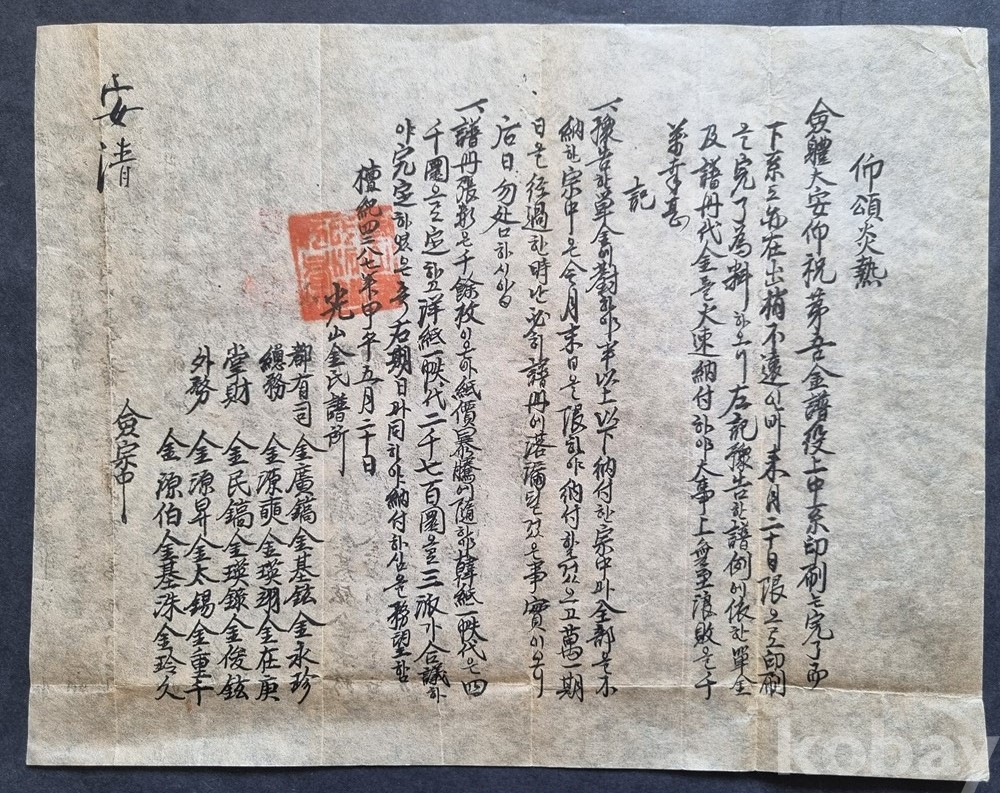 仰頌炎熱
僉體大安仰祝第吾金譜役上中系印刷는完了而
下系도亦在出梢不遠인바來月二十日限으로印刷
을完了爲料하오니左記豫告한譜例에依한單金
及譜册代金을火速納付하야大事上無至浪敗을千
萬幸甚
記
一、豫告한單金에對하야半以上以下納付한宗中과全部을不
納한宗中은今月末日을限하야納付할것으로萬一期
日을經過한時난必히譜册에落漏될것은事實이오니
后日勿咎하시압
一、譜册張數은千餘枚이온바紙價暴騰에隨하야韓紙一帙代은四
千圜을定하고洋紙一帙代二千七百圜을三派가合議하
야完定하였은즉右期日과同하야納付하심을務望함
檀紀四二八七年甲午五月二十日
光山金氏譜所
都有司 金廣鎬 金基鉉 金永珍
總務 金源奭 金瑛翊 金在庚
掌財 金民鎬 金瑛錄 金俊鉉
外務 金源昇 金太錫 金重千
金源伯 金基洙 金玲久
僉宗中
安淸
kobay